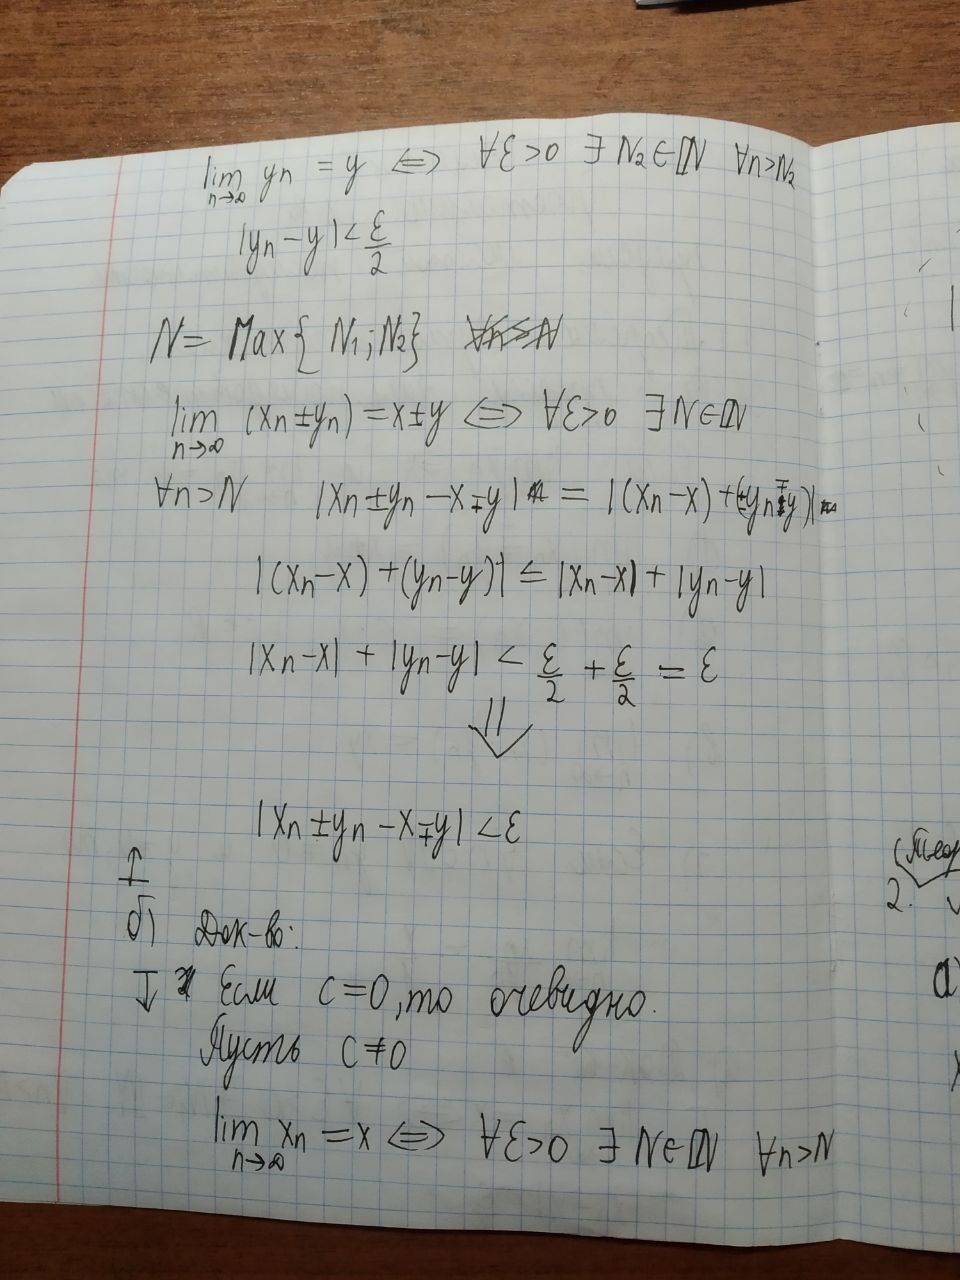 lim yn = y ⟺ ∀ε>0 ∃ N₂∈ℕ ∀n>N₂
n→∞
|yn − y| < ε/2
N = Max{ N₁; N₂}
lim (xn ± yn) = x ± y ⟺ ∀ε>0 ∃N∈ℕ
n→∞
∀n>N |xn ± yn − x ∓ y| = |(xn − x) + (± yn ∓ y)|
|(xn − x) + (yn − y)| ≤ |xn − x| + |yn − y|
|xn − x| + |yn − y| < ε/2 + ε/2 = ε
⇓
|xn ± yn − x ∓ y| < ε
↥
б) Док-во:
↧ Если c=0, то очевидно.
Пусть c≠0
lim xn = x ⟺ ∀ε>0 ∃ N∈ℕ ∀n>N
n→∞
2.
а)